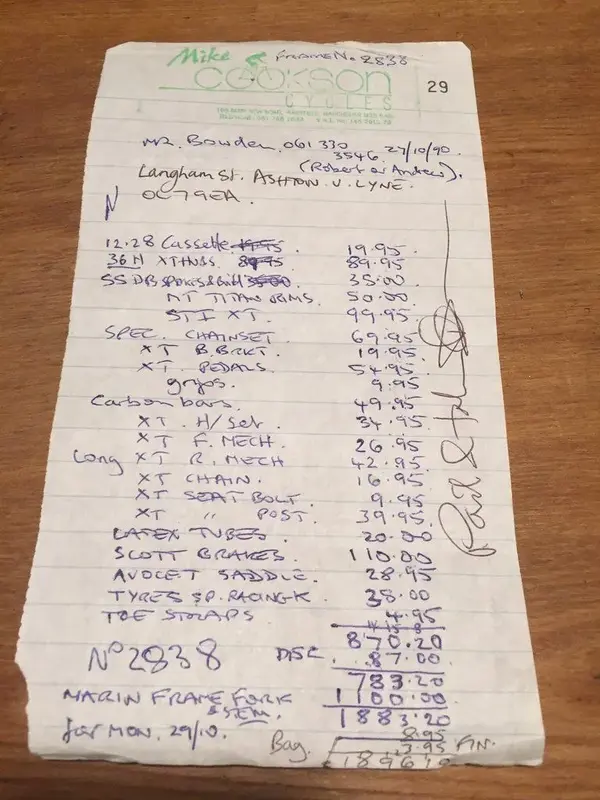 Mike FRAME No. 2838
COOKSON
CYCLES
29
MR. Bowden. 061 330
3546. 27/10/90.
(Robert or Andrew).
Langham St. ASHTON. U. LYNE.
N OL7 9EA.
12.28 Cassette 19.95
36H XT HUBS 89.95
SS DB spokes & 35.00
MT TITAN RIMS. 50.00
STI XT. 99.95
SPEC. CHAINSET 69.95
XT B.BRKT. 19.95
XT. PEDALS 54.95
grips. 9.95
Carbon bars. 49.95
XT. H/Set. 34.95
XT F. MECH. 26.95
Long XT R. MECH 42.95
XT CHAIN. 16.95
XT SEAT BOLT. 9.95
XT " POST. 39.95
LATEX TUBES. 20.00
SCOTT BRAKES. 110.00
AVOCET SADDLE. 28.95
TYRES SP. RACING-K 35.00
TOE STRAPS 4.95
870.20
No 2838 DISC. 87.00
783.20
MARIN FRAME FORK 1100.00
& STEM. 1883.20
for MON. 29/10. 8.95
Bag. 3.95 FIN.
Paid